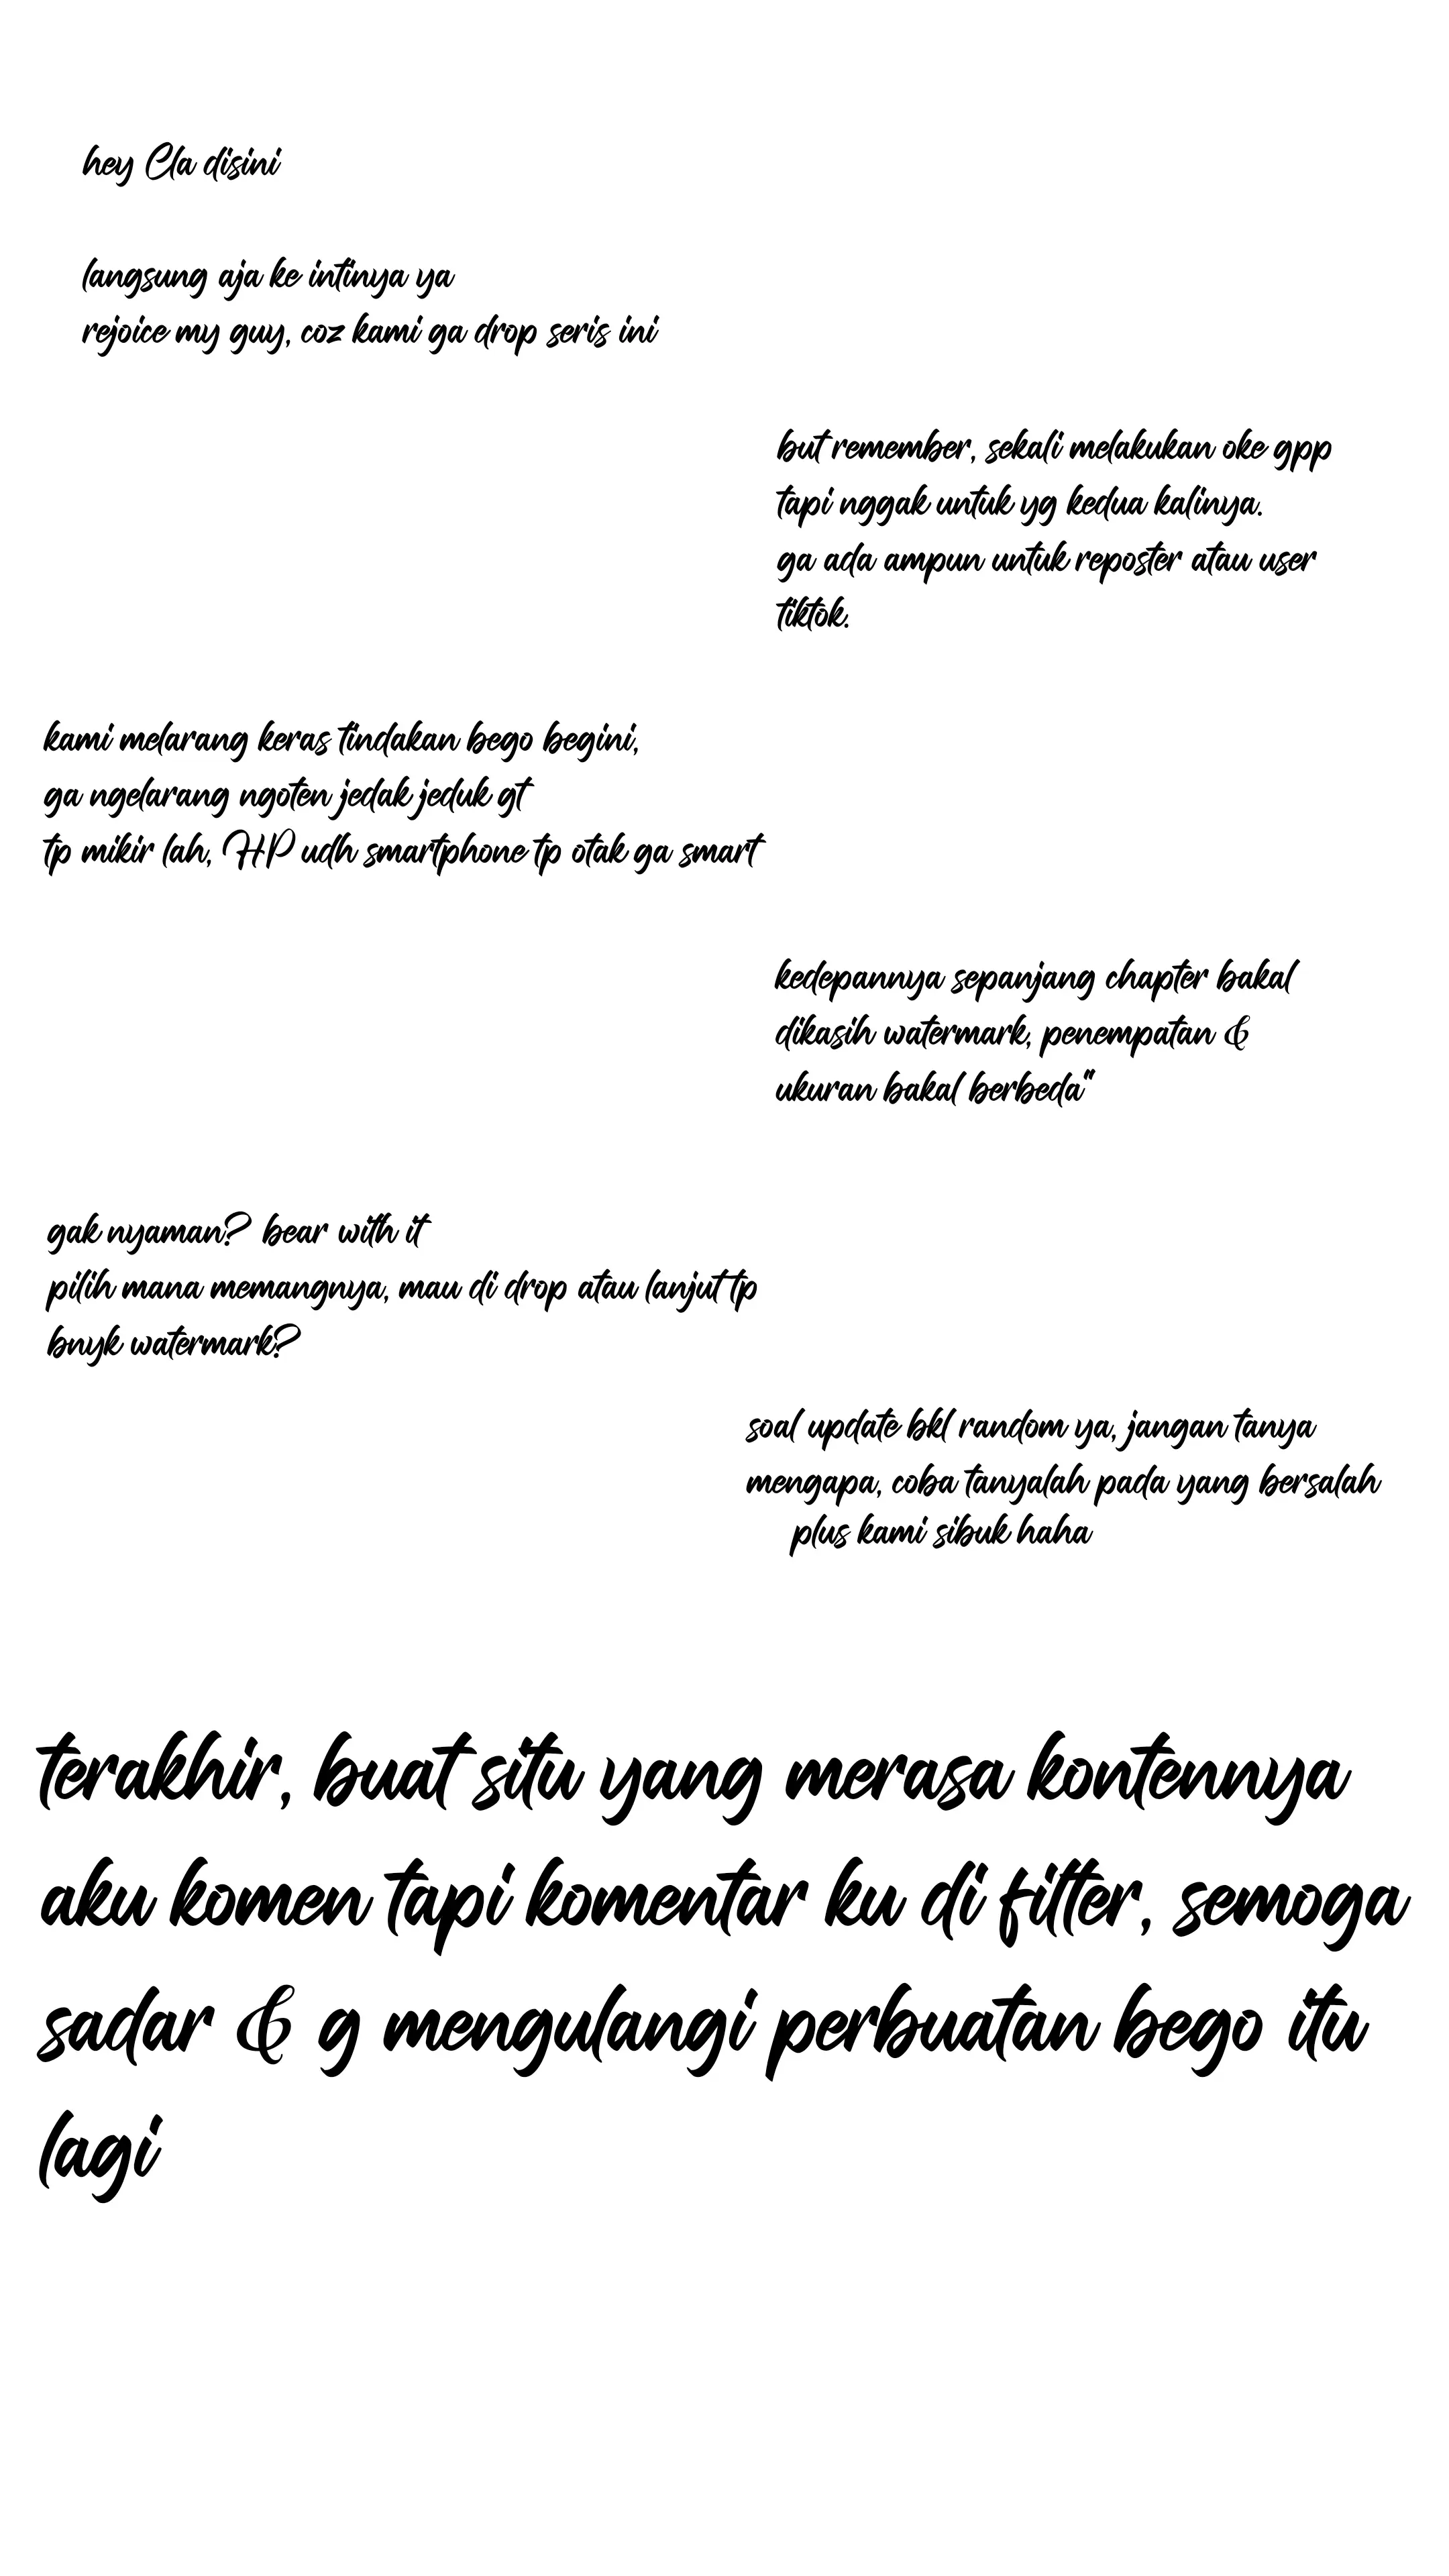 hey Cla disini
langsung aja ke intinya ya
rejoice my guy, coz kami ga drop seris ini
but remember, sekali melakukan oke gpp
tapi nggak untuk yg kedua kalinya.
ga ada ampun untuk reposter atau user
tiktok.
kami melarang keras tindakan bego begini,
ga ngelarang ngoten jedak jeduk gt
tp mikir lah, HP udh smartphone tp otak ga smart
kedepannya sepanjang chapter bakal
dikasih watermark, penempatan &
ukuran bakal berbeda"
gak nyaman? bear with it
pilih mana memangnya, mau di drop atau lanjut tp
bnyk watermark?
soal update bkl random ya, jangan tanya
mengapa, coba tanyalah pada yang bersalah
plus kami sibuk haha
terakhir, buat situ yang merasa kontennya
aku komen tapi komentar ku di filter, semoga
sadar & g mengulangi perbuatan bego itu
lagi